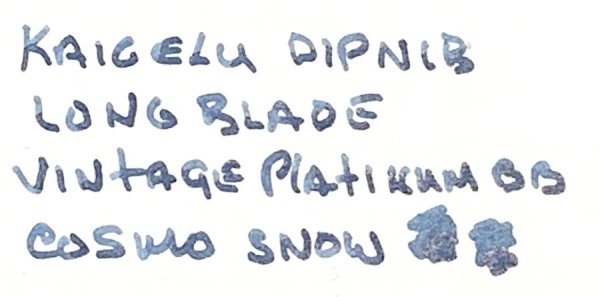 KAIGELU DIPNIB
LONG BLADE
VINTAGE PLATINUM BB
COSMO SNOW